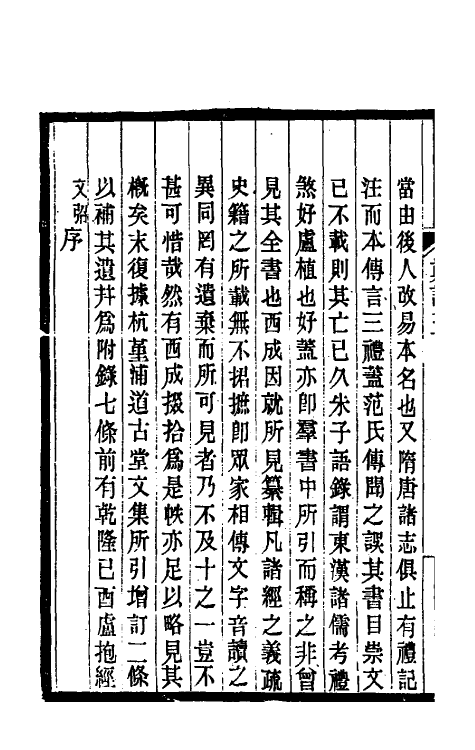 當由後人改易本名也又隋唐諸志俱止有禮記
注而本傳言三禮蓋范氏傳聞之誤其書目崇文
已不載則其亡已久朱子語錄謂東漢諸儒考禮
煞好盧植也好蓋亦卽羣書中所引而稱之非曾
見其全書也西成因就所見纂輯凡諸經之義疏
史籍之所載無不捃摭卽眾家相傳文字音讀之
異同罔有遺棄而所可見者乃不及十之一豈不
甚可惜哉然有西成掇拾爲是帙亦足以略見其
概矣末復據杭堇浦道古堂文集所引增訂二條
以補其遺幷爲附錄七條前有乾隆己酉盧抱經
文弨序